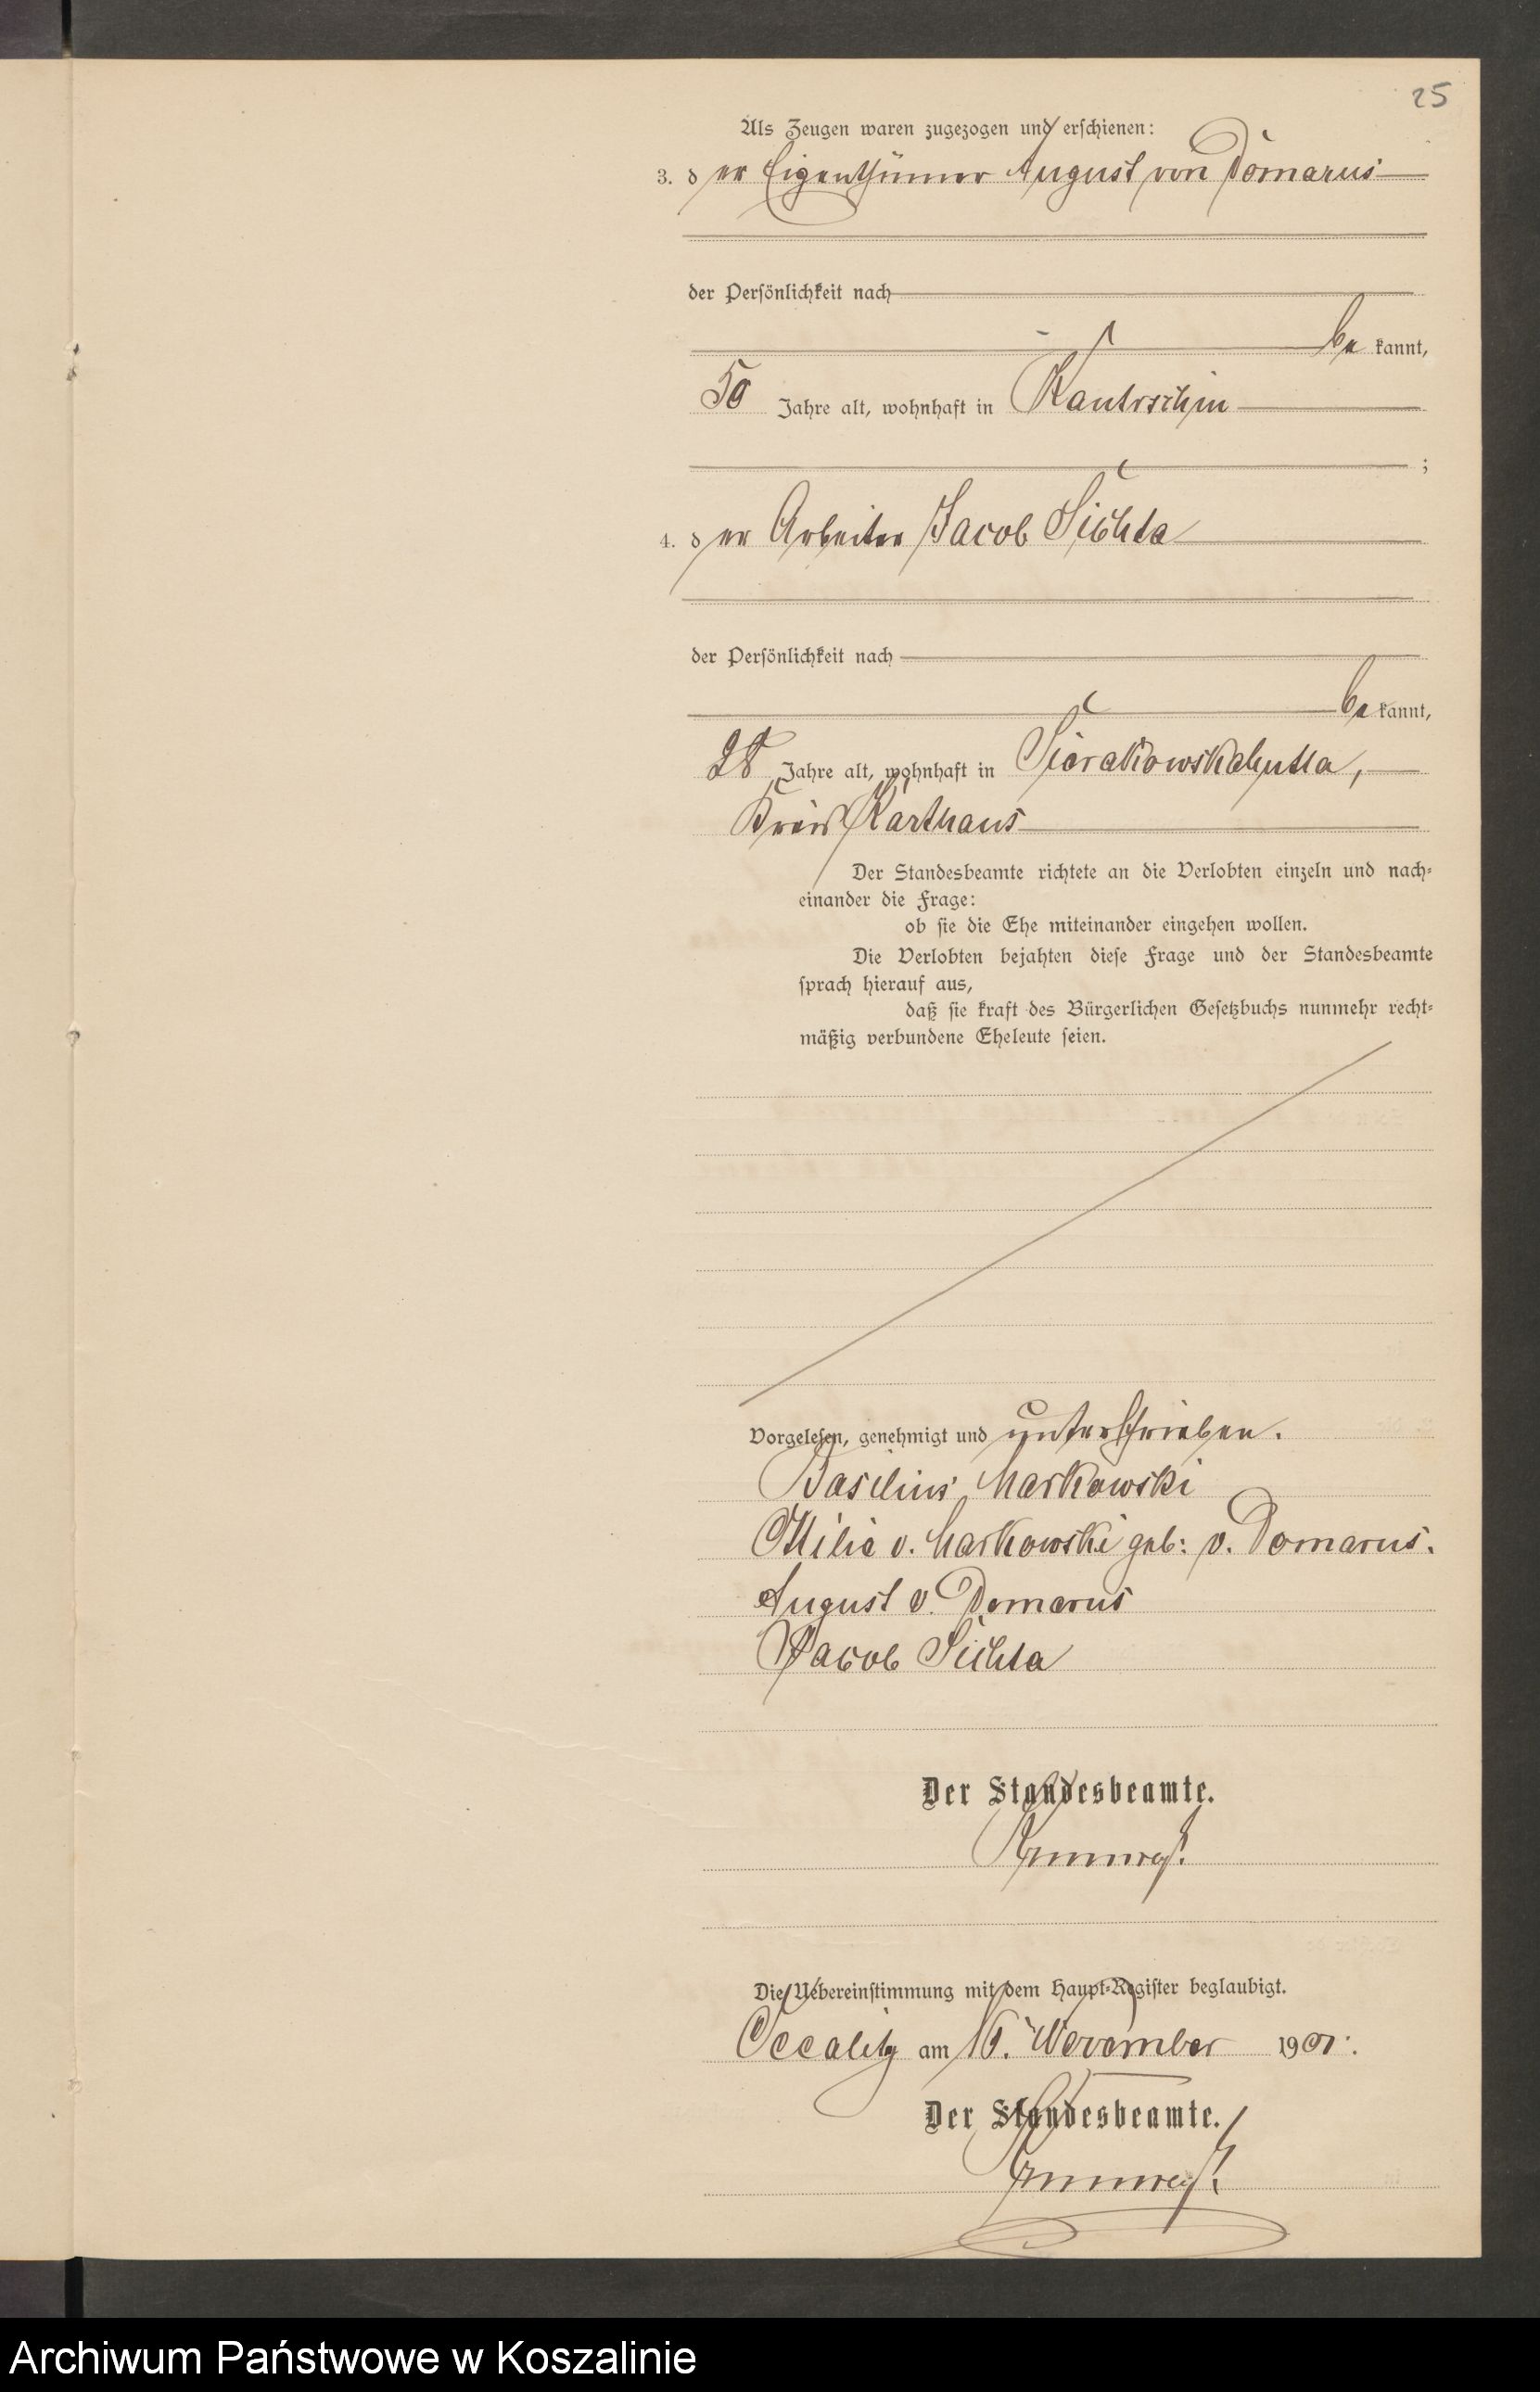 25
Als Zeugen waren zugezogen und erschienen:
3. der Eigenthümer August von Domarus
der Persönlichkeit nach
bekannt,
50 Jahre alt, wohnhaft in Kantrschin
;
4. der Arbeiter Jacob Sichta
der Persönlichkeit nach
bekannt,
28 Jahre alt, wohnhaft in Sierakowskahutta,
Kreis Karthaus
Der Standesbeamte richtete an die Verlobten einzeln und nach-
einander die Frage:
ob sie die Ehe miteinander eingehen wollen.
Die Verlobten bejahten diese Frage und der Standesbeamte
sprach hierauf aus,
daß sie kraft des Bürgerlichen Gesetzbuchs nunmehr recht-
mäßig verbundene Eheleute seien.
Vorgelesen, genehmigt und unterschrieben.
Basilius Markowski
Ottilie v. Markowski geb: v. Domarus.
August v. Domarus
Jacob Sichta
Der Standesbeamte.
Die Uebereinstimmung mit dem Haupt-Register beglaubigt.
Occalitz am 16. November 1901.
Der Standesbeamte.
Archiwum Państwowe w Koszalinie